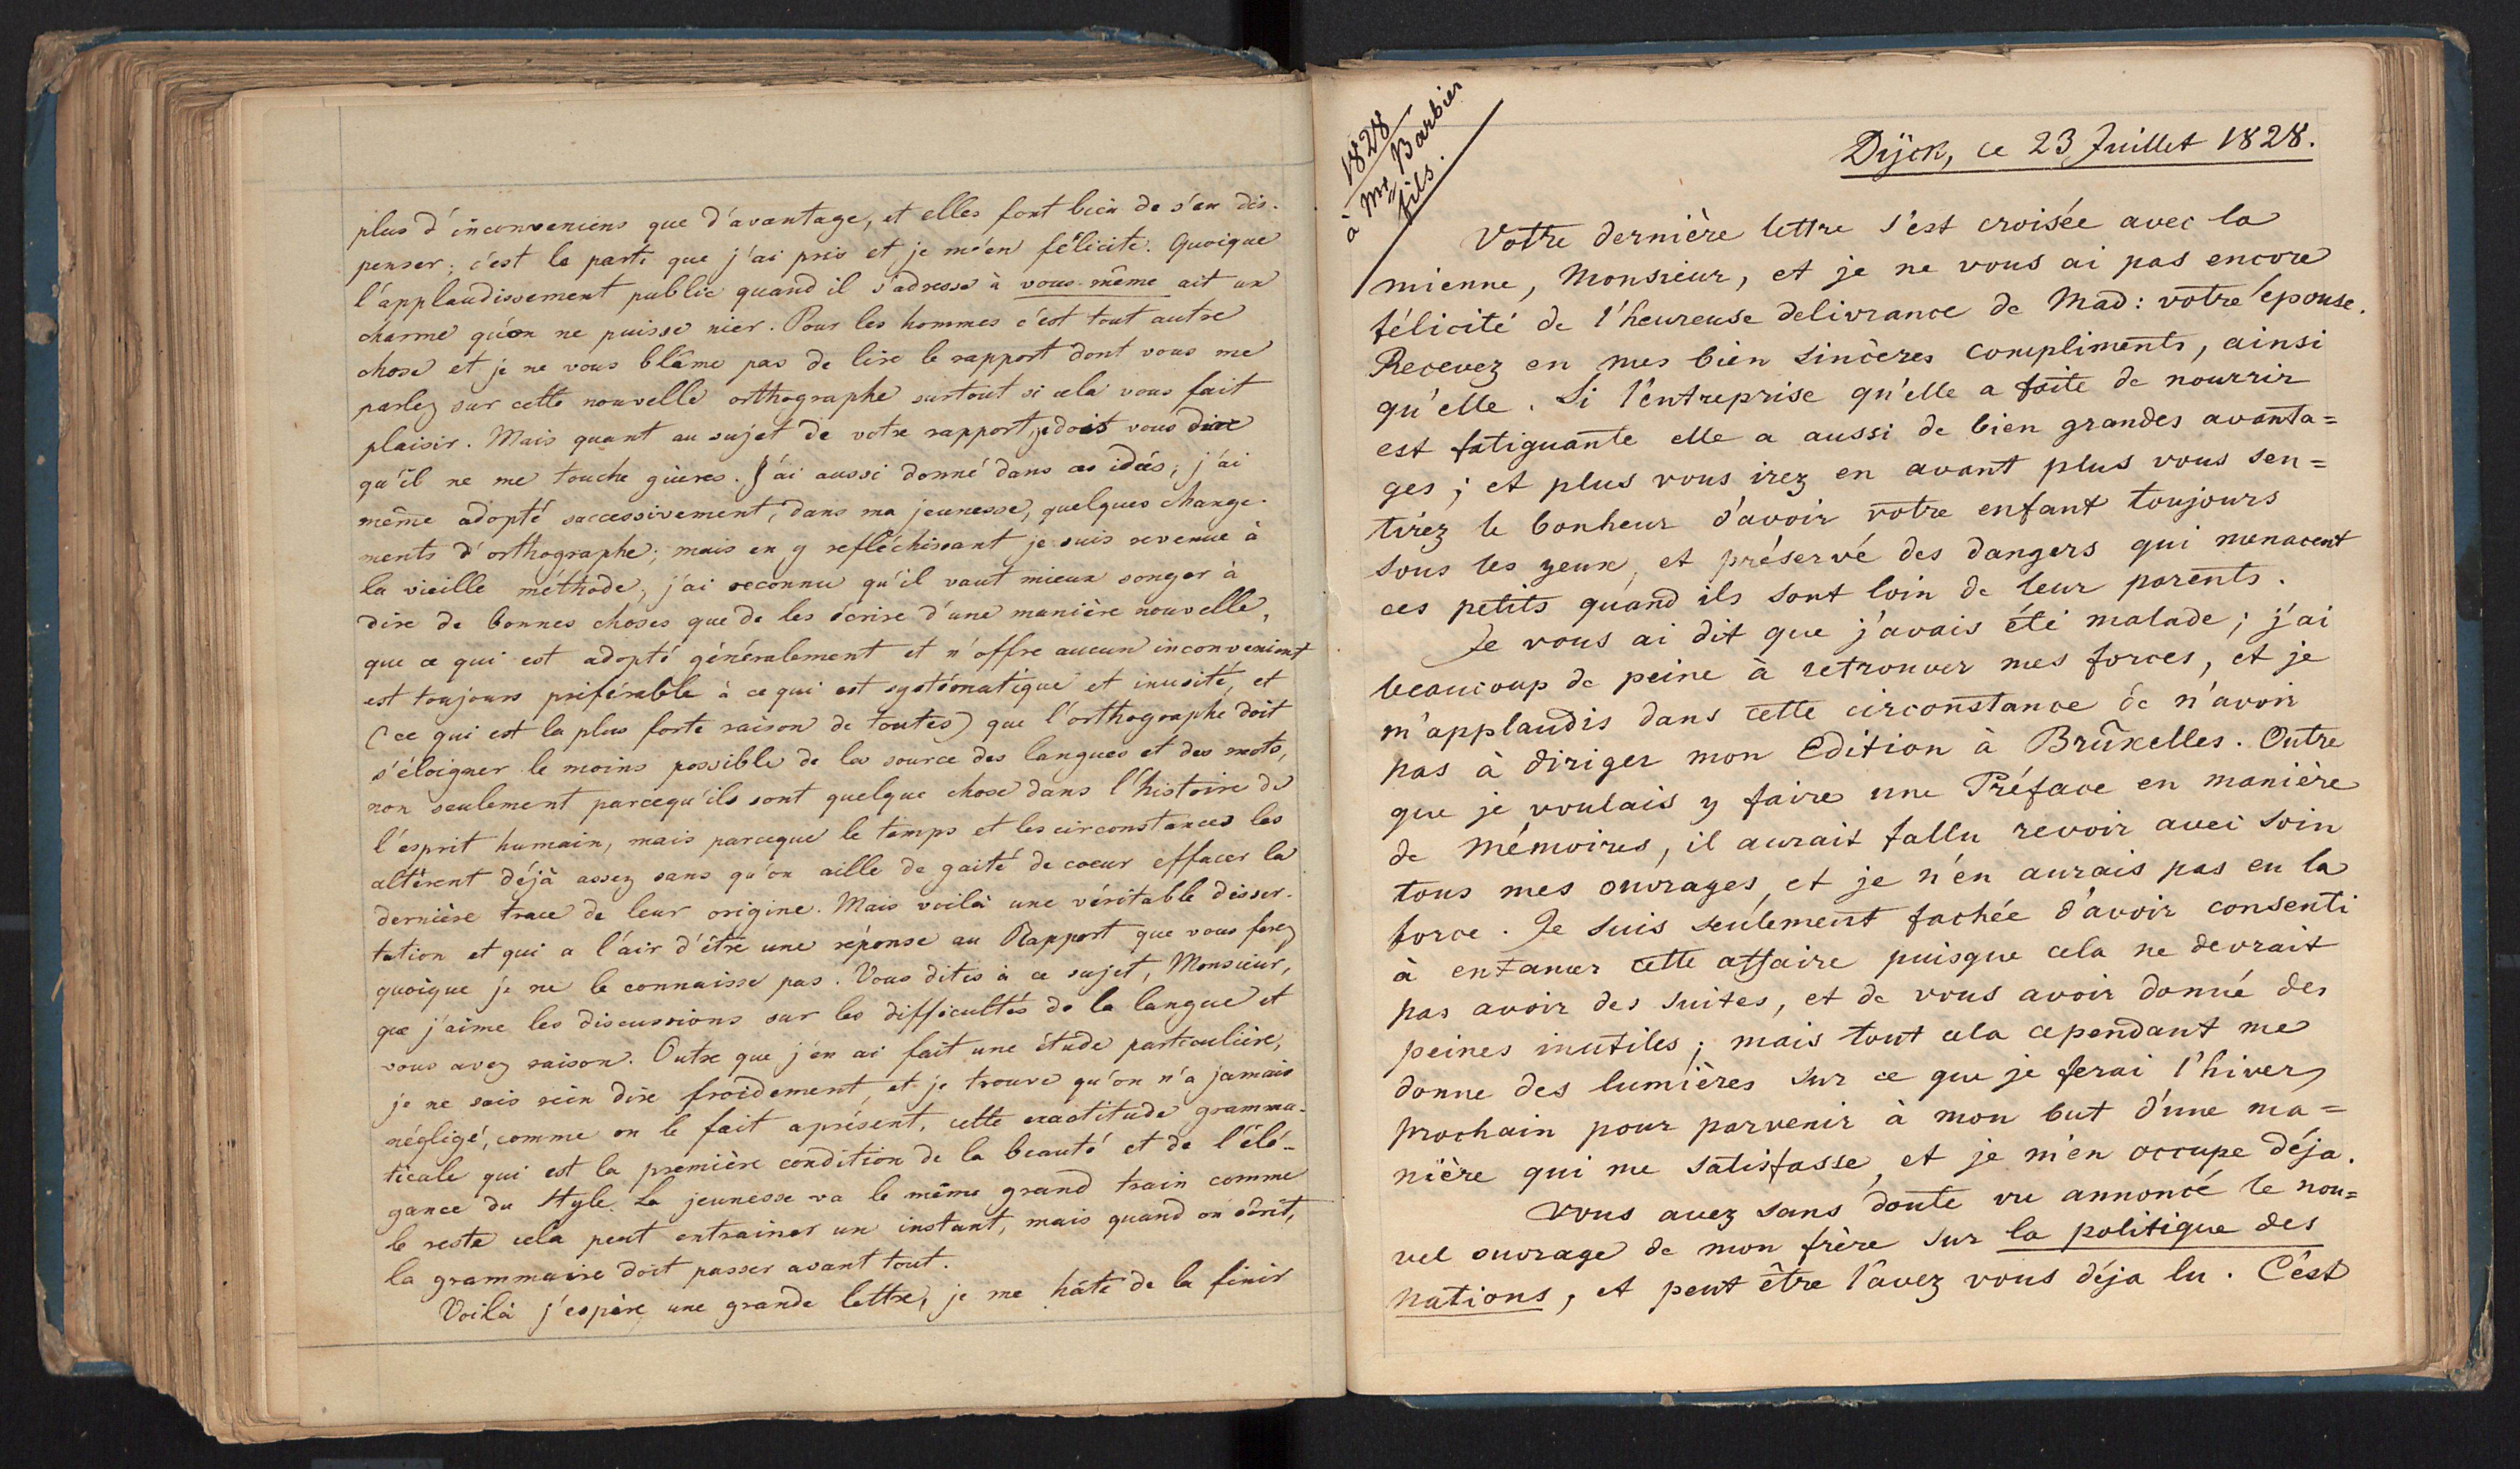 plus d'inconveniens que d'avantage, et elles font bien de s'en dis-
penser; c'est le parti que j'ai pris et je m'en félicite. Quoique
l'applaudissement public quand il s'adresse à vous-même ait un
charme qu'on ne puisse nier. Pour les hommes c'est tout autre
chose et je ne vous blâme pas de lire le rapport dont vous me
parlez sur cette nouvelle orthographe surtout si cela vous fait
plaisir. Mais quant au sujet de votre rapport, je dois vous dire
qu'il ne me touche guères. J'ai aussi donné dans ces idées, j'ai
même adopté successivement, dans ma jeunesse, quelques change-
ments d'orthographe; mais en y refléchissant je suis revenue à
la vieille méthode, j'ai reconnu qu'il vaut mieux songer à
dire de bonnes choses que de les écrire d'une manière nouvelle,
que ce qui est adopté généralement et n'offre aucun inconvenient
est toujours préférable à ce qui est systématique et inusité, et
(ce qui est la plus forte raison de toutes) que l'orthographe doit
s'éloigner le moins possible de la source des langues et des mots,
non seulement parcequ'ils sont quelque chose dans l'histoire de
l'esprit humain, mais parceque le temps et les circonstances les
altèrent déjà assez sans qu'on aille de gaité de coeur effacer la
dernière trace de leur origine. Mais voilà une véritable disser-
tation et qui a l'air d'être une réponse au Rapport que vous ferez
quoique je ne le connaisse pas. Vous dites à ce sujet, Monsieur,
que j'aime les discussions sur les difficultés de la langue et
vous avez raison. Outre que j'en ai fait une étude particulière,
je ne sais rien dire froidement, et je trouve qu'on n'a jamais
négligé, comme on le fait aprésent, cette exactitude gramma-
ticale qui est la première condition de la beauté et de l'élé-
gance du Style. La jeunesse va le même grand train comme
le reste cela peut entrainer un instant, mais quand on écrit,
la grammaire doit passer avant tout.
Voilà j'espère une grande lettre, je me hâte de la finir
1828
à Mr Barbier
fils.
Dÿck, ce 23 Juillet 1828.
Votre dernière lettre s'est croisée avec la
mienne, Monsieur, et je ne vous ai pas encore
félicité de l'heureuse delivrance de Mad: votre épouse.
Recevez en mes bien sincères compliments, ainsi
qu'elle. Si l'entreprise qu'elle a faite de nourrir
est fatiguante elle a aussi de bien grandes avanta=
ges; et plus vous irez en avant plus vous sen=
tirez le bonheur d'avoir votre enfant toujours
sous les yeux, et préservé des dangers qui menacent
ces petits quand ils sont loin de leur parents.
Je vous ai dit que j'avais été malade; j'ai
beaucoup de peine à retrouver mes forces, et je
m'applaudis dans cette circonstance de n'avoir
pas à diriger mon Edition à Brûxelles. Outre
que je voulais y faire une Préface en manière
de mémoires, il aurait fallu revoir avec soin
tous mes ouvrages, et je n'en aurais pas eu la
force. Je suis seulement fachée d'avoir consenti
à entamer cette affaire puisque cela ne devrait
pas avoir des suites, et de vous avoir donné des
peines inutiles; mais tout cela cependant me
donne des lumières sur ce que je ferai l'hiver
prochain pour parvenir à mon but d'une ma=
nière qui me satisfasse, et je m'en occupe déja.
Vous avez sans doute vu annoncé le nou=
vel ouvrage de mon frère sur la politique des
nations, et peut être l'avez vous déja lu. C'est